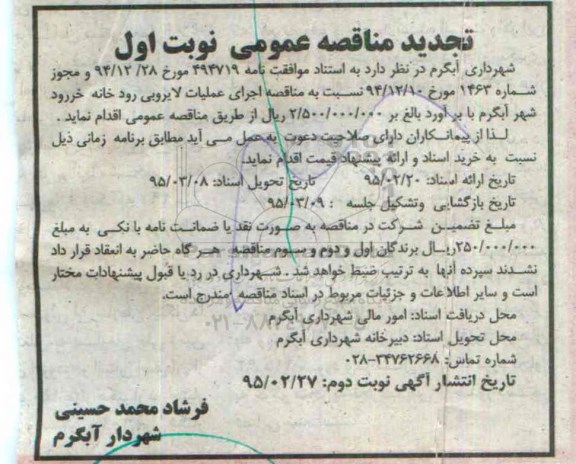 تجدید مناقصه عمومی نوبت اول
شهرداری آبگرم در نظر دارد به استناد موافقت نامه ۴۹۴۷۱۹ مورخ ۲۸/ ۹۴/۱۲ و مجوز
شماره ۱۴۶۳ مورخ ۹۴/۱۲/۱۰ نسبت به مناقصه اجرای عملیات لایروبی رود خانه خررود
شهر آبگرم با بر آورد بالغ بر ۲/۵۰۰/۰۰۰/۰۰۰ ریال از طریق مناقصه عمومی اقدام نماید .
لذا از پیمانکاران دارای صلاحیت دعوت به عمل می آید مطابق برنامه زمانی ذیل
نسبت به خرید اسناد و ارائه پیشنهاد قیمت اقدام نماید.
تاریخ ارائه اسناد: ۹۵/۰۲/۲۰ تاریخ تحویل اسناد: ۹۵/۰۳/۰۸
تاریخ بازگشایی وتشکیل جلسه : ۹۵/۰۳/۰۹
مبلغ تضمین شرکت در مناقصه به صورت نقد یا ضمانت نامه بانکی به مبلغ
۲۵۰/۰۰۰/۰۰۰ریال برندگان اول و دوم و سوم مناقصه هر گاه حاضر به انعقاد قرار داد
نشدند سپرده آنها به ترتیب ضبط خواهد شد . شهرداری در رد یا قبول پیشنهادات مختار
است و سایر اطلاعات و جزئیات مربوط در اسناد مناقصه مندرج است.
محل دریافت اسناد: امور مالی شهرداری آبگرم
محل تحویل اسناد: دبیرخانه شهرداری آبگرم
شماره تماس: ۳۴۷۶۲۶۶۸-۰۲۸
تاریخ انتشار آگهی نوبت دوم: ۹۵/۰۲/۲۷
فرشاد محمد حسینی
شهردار آبگرم